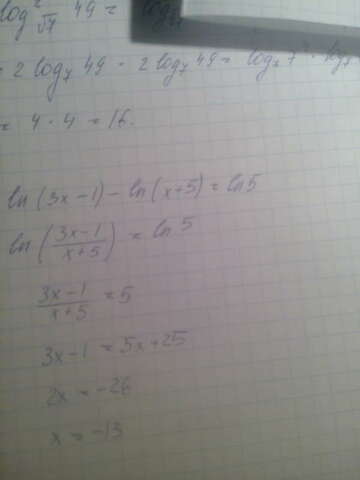 log²_√7 49 =
2 log₇ 49 · 2 log₇ 49 = log₇ 7
= 4 · 4 = 16.
ln (3x-1) - ln (x+5) = ln 5
ln ((3x-1)/(x+5)) = ln 5
(3x-1)/(x+5) = 5
3x-1 = 5x+25
2x = -26
x = -13